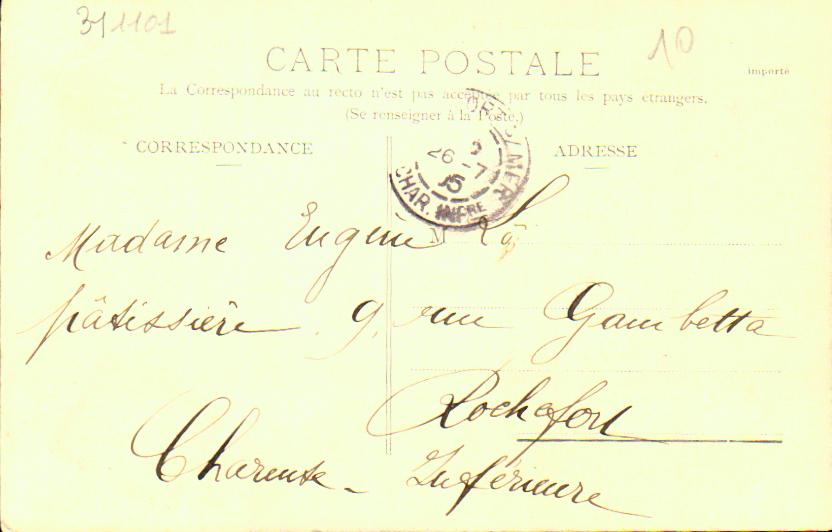 31101
10
CARTE POSTALE
importé
La Correspondance au recto n'est pas acceptée par tous les pays étrangers.
(Se renseigner à la Poste.)
CORRESPONDANCE
ADRESSE
26 - 7
05
CHAR. INFRE
S/MER
M
Madame Eugène
pâtissière 9, rue Gambetta
Rochefort
Charente - Inférieure